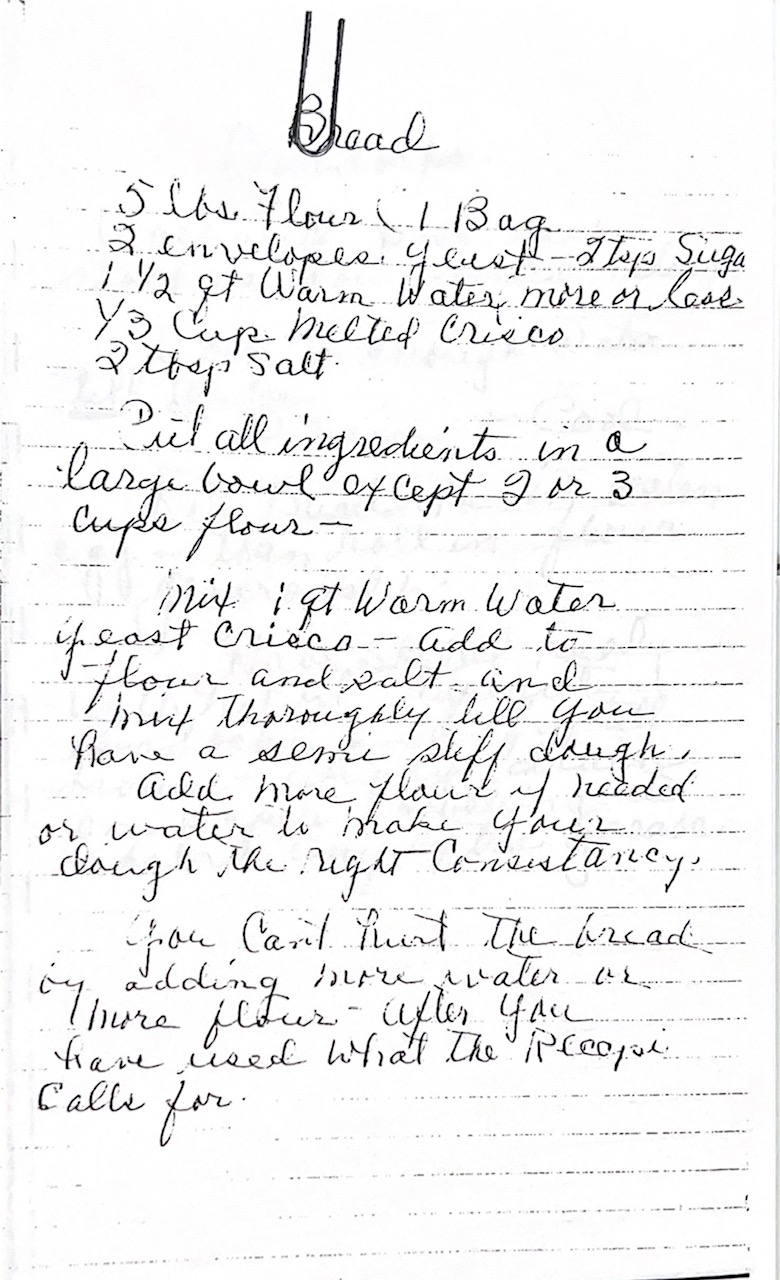 Bread
5 lbs. Flour ( 1 Bag
2 envelopes yeast - 2 tsp Suga
1 1/2 qt Warm Water more or less
1/3 Cup Melted Crisco
2 tbsp Salt
Put all ingredients in a
large bowl except 2 or 3
cups flour -
Mix 1 qt Warm Water
yeast Crisco - add to
flour and salt and
mix thoroughly till you
have a semi stiff dough.
add more flour if needed
or water to make your
dough the right Consistancy.
you Can't hurt the bread
by adding more water or
more flour - after you
have used what the Recepi
Calls for.